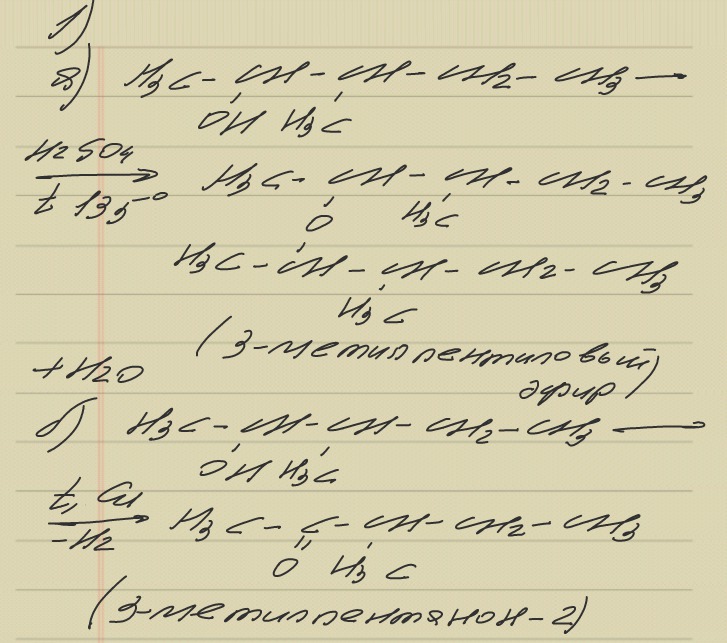 1)
8) H3C - CH - CH - CH2 - CH3 →
OH H3C
H2SO4
t 133° → H3C - CH - CH - CH2 - CH3
O H3C
H3C - CH - CH - CH2 - CH3
H3C
(3-метилпентиловый
+ H2O эфир)
H3C - CH - CH - CH2 - CH3 →
OH H3C
t, Cu
-H2 → H3C - C - CH - CH2 - CH3
O H3C
(3-метилпентанон-2)